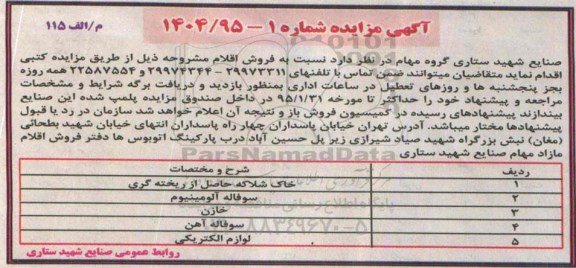 آگهی مزایده شماره ۱ – ۱۴۰۴/۹۵
م/الف ۱۱۵
صنایع شهید ستاری گروه مهام در نظر دارد نسبت به فروش اقلام مشروحه ذیل از طریق مزایده کتبی
اقدام نماید متقاضیان میتوانند ضمن تماس با تلفنهای ۲۹۹۷۳۳۱۱ - ۲۹۹۷۴۳۴۴ و ۲۲۵۸۷۵۵۴ همه روزه
بجز پنجشنبه ها و روزهای تعطیل در ساعات اداری بمنظور بازدید و دریافت برگه شرایط و مشخصات
مراجعه و پیشنهاد خود را حداکثر تا مورخه ۹۵/۱/۳۱ در داخل صندوق مزایده پلمپ شده این صنایع
بیندازند پیشنهادهای رسیده در کمیسیون فروش باز و نتیجه آن اعلام خواهد شد سازمان در رد یا قبول
پیشنهادها مختار میباشد. آدرس تهران خیابان پاسداران چهار راه پاسداران انتهای خیابان شهید بطحائی
(مغان) نبش بزرگراه شهید صیاد شیرازی زیر پل حسین آباد درب پارکینگ اتوبوس ها دفتر فروش اقلام
مازاد مهام صنایع شهید ستاری
ParsNamadData
ردیف شرح و مختصات
۱ خاک شلاکه حاصل از ریخته گری
۲ سوفاله آلومینیوم
۳ خازن
۴ سوفاله آهن
۵ لوازم الکتریکی
۸۸۳۴۹۶۷۰-۵
روابط عمومی صنایع شهید ستاری